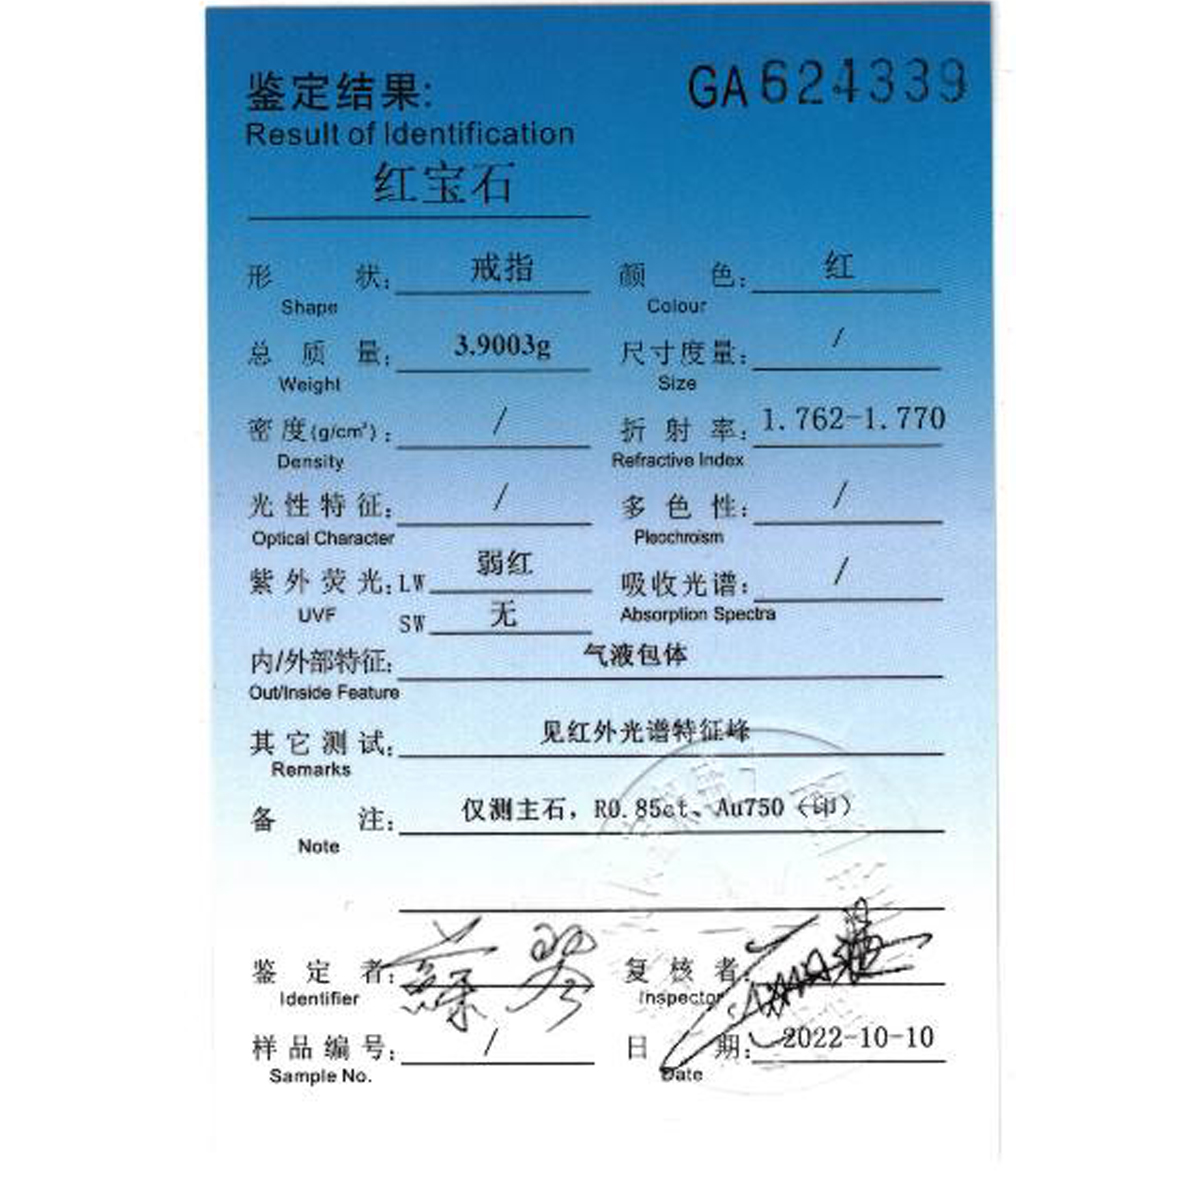 鉴定结果: GA624339
Result of Identification
红宝石
形 状: 戒指 颜 色: 红
Shape Colour
总 质 量: 3.9003g 尺寸度量: /
Weight Size
密度(g/cm³): / 折 射 率: 1.762-1.770
Density Refractive Index
光性特征: / 多 色 性: /
Optical Character Pleochroism
紫外荧光: LW 弱红 吸收光谱: /
UVF SW 无 Absorption Spectra
内/外部特征: 气液包体
Out/Inside Feature
其它测试: 见红外光谱特征峰
Remarks
备 注: 仅测主石，R0.85ct、Au750（印）
Note
鉴 定 者: 复 核 者:
Identifier Inspector
样品编号: / 日 期: 2022-10-10
Sample No. Date